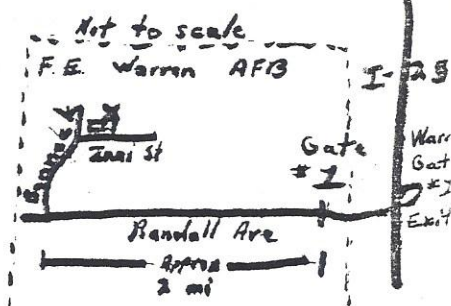 Not to scale
F.E. Warren AFB
I-25
Gate
#1
Warr
Gat
#1
Exit
Randall Ave
Approx
2 mi